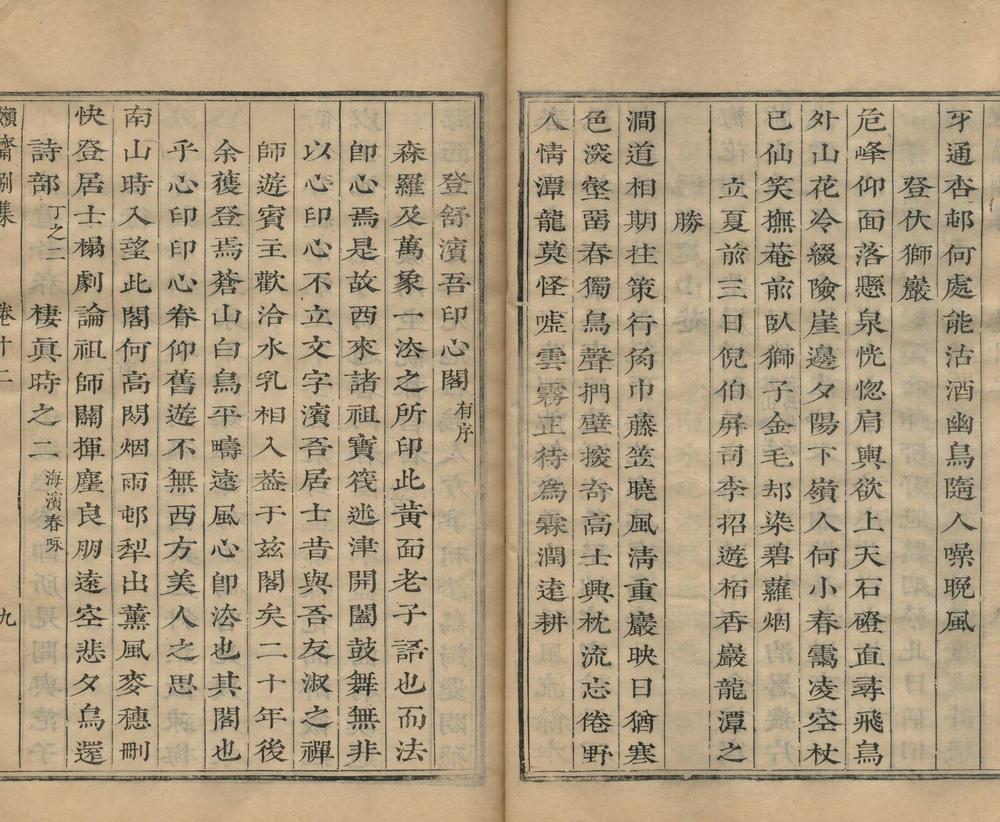 牙通杏邨何處能沽酒幽鳥隨人噪晚風
登伏獅巖
危峰仰面落懸泉恍惚肩輿欲上天石磴直尋飛鳥
外山花冷綴險崖邊夕陽下嶺人何小春靄凌空杖
已仙笑撫菴前臥獅子金毛却染碧蘿烟
立夏前三日倪伯屏司李招遊栢香巖龍潭之
勝
澗道相期拄策行角巾藤笠曉風清重巖映日猶寒
色淡壑畱春獨鳥聲捫壁援奇高士興枕流忘倦野
人情潭龍莫怪噓雲霧正待為霖潤遠耕
登舒濱吾印心閣有序
森羅及萬象一法之所印此黃面老子語也而法
卽心焉是故西來諸祖寶筏迷津開闔鼓舞無非
以心印心不立文字濱吾居士昔與吾友淑之禪
師遊賓主歡洽水乳相入葢于茲閣矣二十年後
余獲登焉蒼山白鳥平疇遠風心卽法也其閣也
乎心印印心眷仰舊遊不無西方美人之思
南山時入望此閣何高閟烟雨邨犁出薰風麥穗刪
快登居士榻劇論祖師關揮麈良朋遠空悲夕鳥還
詩部丁之三 棲眞時之二海濱春咏
嬾齋別集 卷十二 九